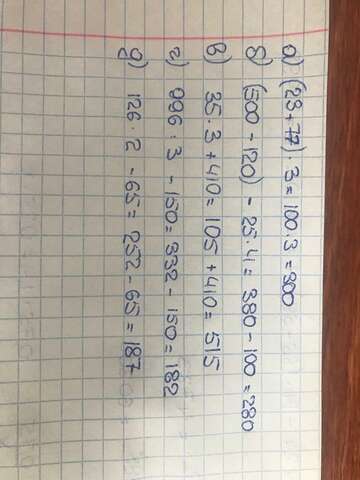 а) (23 + 77) · 3 = 100 · 3 = 300
б) (500 - 120) - 25 · 4 = 380 - 100 = 280
в) 35 · 3 + 410 = 105 + 410 = 515
г) 996 : 3 - 150 = 332 - 150 = 182
д) 126 · 2 - 65 = 252 - 65 = 187